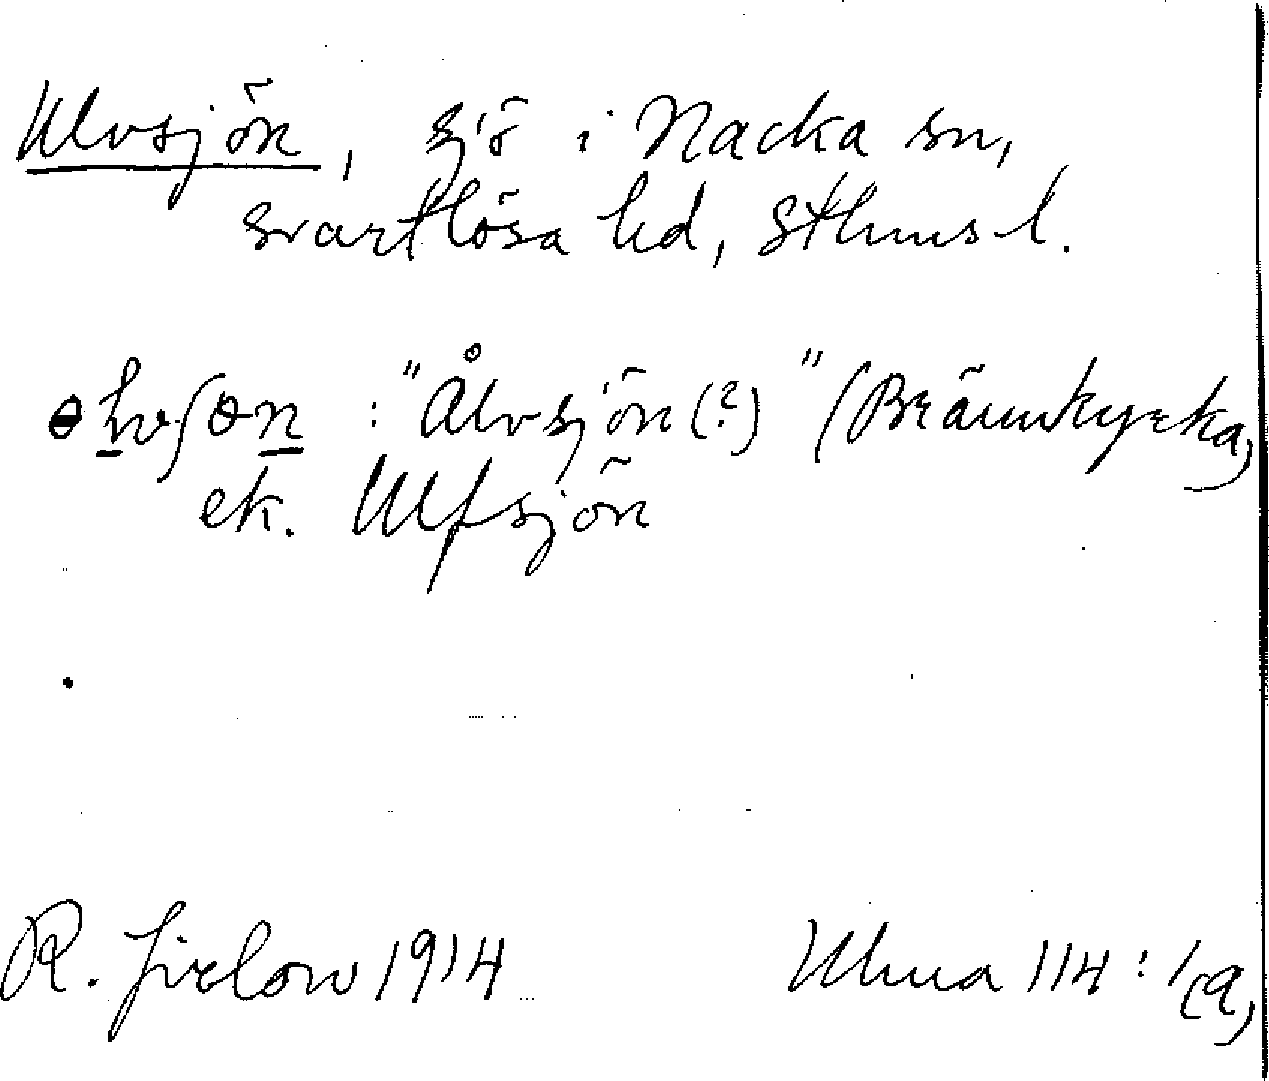 Ulvsjön, sjö i Nacka sn,
Svartlösa hd, Sthms l.
: "Ålvsjön(?)" (Brännkyrka,
ek. Ulfsjön
R. Jirlow 1914 Ulma 114: